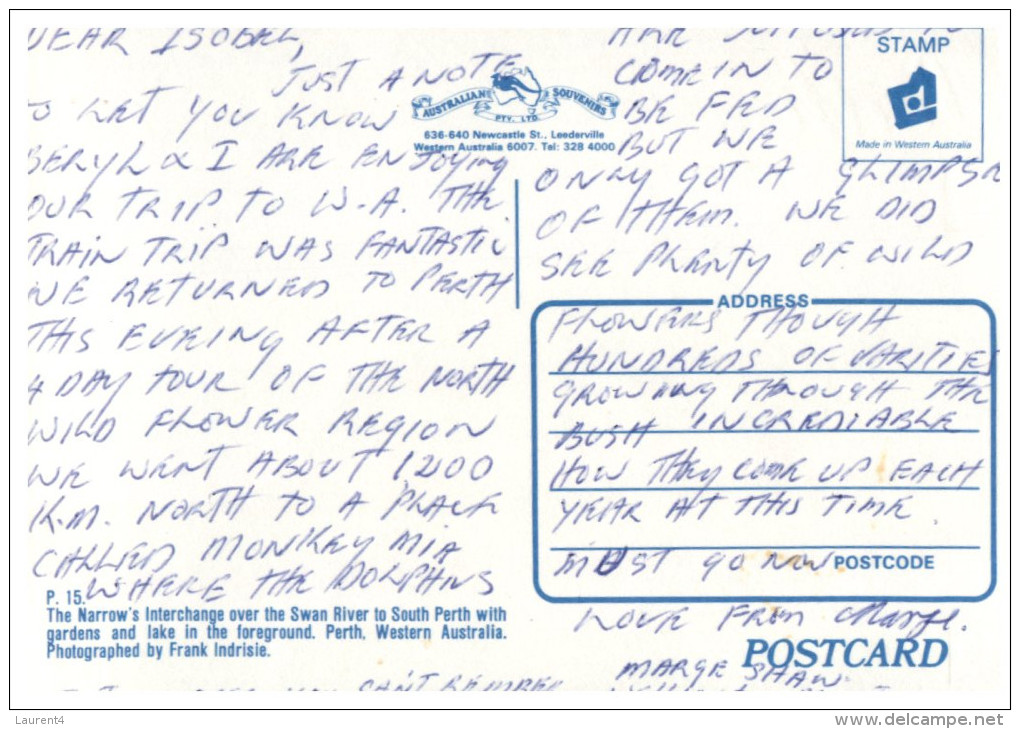 DEAR ISOBEL,
JUST A NOTE
TO LET YOU KNOW
BERYL & I ARE ENJOYING
OUR TRIP TO W.A. THE
TRAIN TRIP WAS FANTASTIC
WE RETURNED TO PERTH
THIS EVEING AFTER A
4 DAY TOUR OF THE NORTH
WILD FLOWER REGION
WE WENT ABOUT 1200
K.M. NORTH TO A PLACE
CALLED MONKEY MIA
WHERE THE DOLPHINS
ARE SUPPOSED TO
COME IN TO
BE FED
BUT WE
ONLY GOT A GLIMPSE
OF THEM. WE DID
SEE PLENTY OF WILD
FLOWERS THOUGH
HUNDREDS OF VARITIES
GROWING THROUGH THE
BUSH INCREDIABLE
HOW THEY COME UP EACH
YEAR AT THIS TIME.
MUST GO NOW
LOVE FROM Marge.
MARGE SHAW.
CAN'T REMBER
AUSTRALIAN SOUVENIRS
PTY. LTD.
636-640 Newcastle St., Leederville
Western Australia 6007. Tel: 328 4000
STAMP
Made in Western Australia
ADDRESS
POSTCODE
P. 15.
The Narrow's Interchange over the Swan River to South Perth with
gardens and lake in the foreground. Perth, Western Australia.
Photographed by Frank Indrisie.
POSTCARD
Laurent4
www.delcampe.net